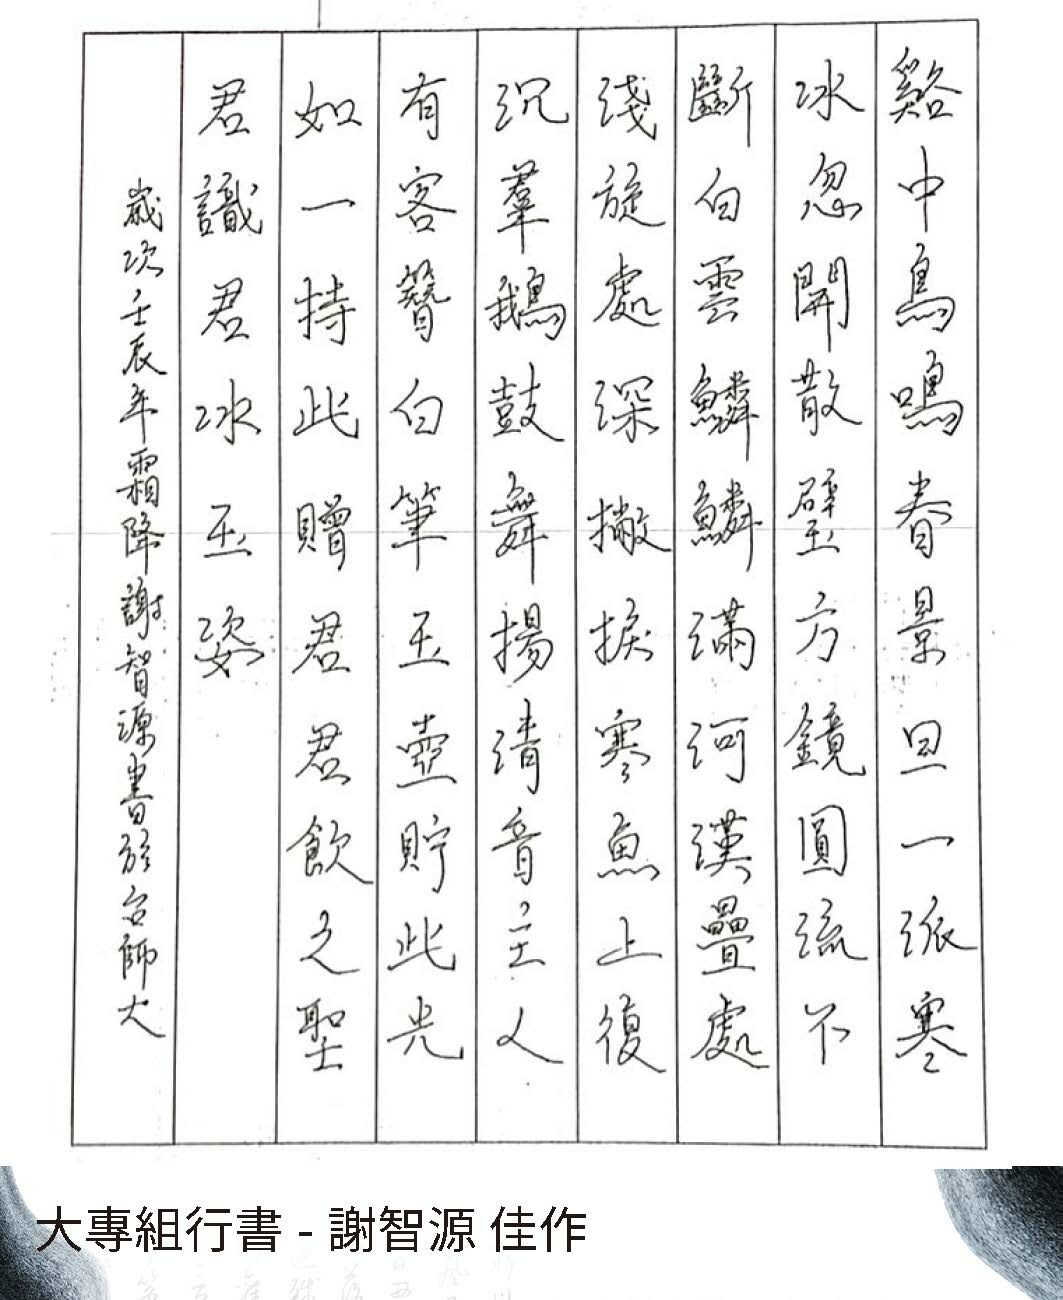 谿中鳥鳴春景旦一派寒
冰忽開散璧方鏡圓流不
斷白雲鱗鱗滿河漢疊處
淺旋處深撇捩寒魚上復
沉羣鵝鼓舞揚清音主人
有客簪白筆玉壺貯此光
如一持此贈君君飲之聖
君識君冰玉姿
歲次壬辰年霜降謝智源書於台師大
大專組行書 - 謝智源 佳作